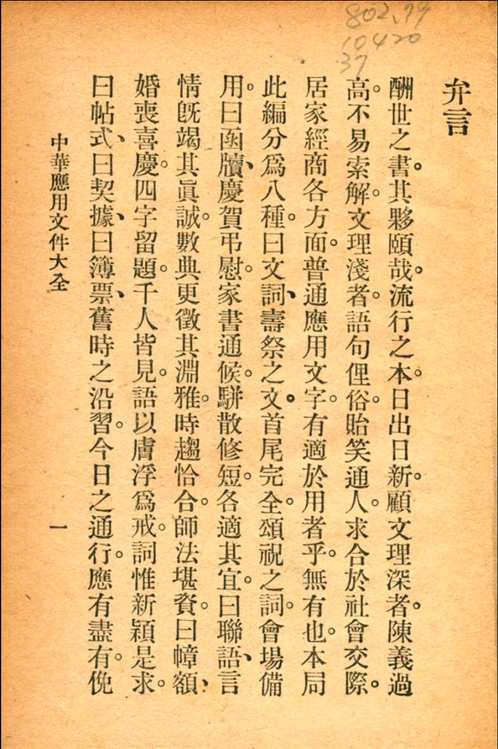 802.79
10420
37
弁言
酬世之書。其夥頤哉。流行之本。日出日新。顧文理深者。陳義過
高。不易索解。文理淺者。語句俚俗。貽笑通人。求合於社會交際。
居家經商各方面。普通應用文字。有適於用者乎。無有也。本局
此編分爲八種。曰文詞、壽祭之文。首尾完全。頌祝之詞。會場備
用。曰函牘、慶賀弔慰。家書通候。駢散修短。各適其宜。曰聯語、言
情旣竭其眞誠。數典更徵其淵雅。時趨恰合。師法堪資。曰幛額、
婚喪喜慶。四字留題。千人皆見。語以膚浮爲戒。詞惟新穎是求。
曰帖式、曰契據、曰簿票、舊時之沿習。今日之通行。應有盡有。俛
中華應用文件大全
一